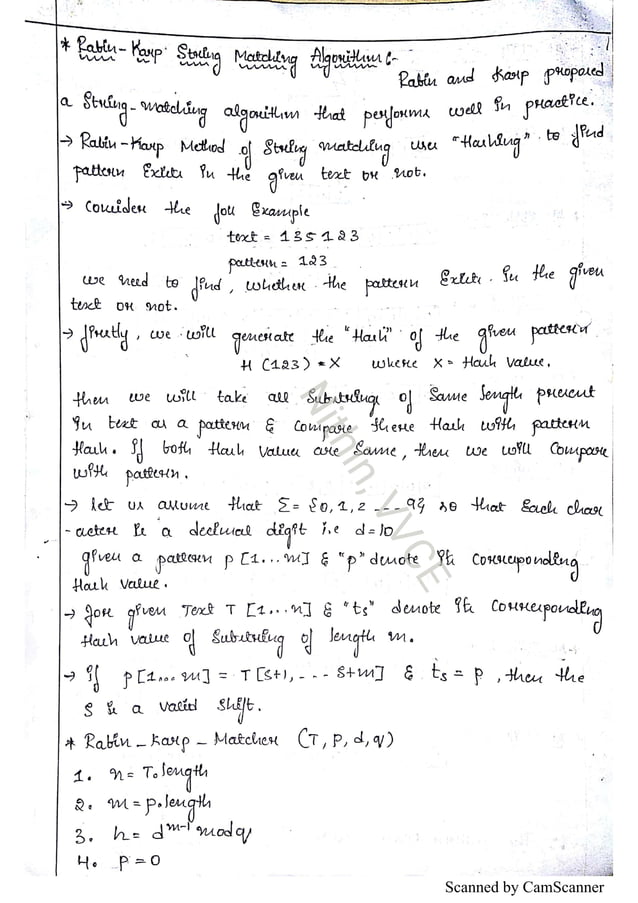 * Rabin-Karp String Matching Algorithm :-
Rabin and Karp proposed
a String-matching algorithm that performs well in practice.
→ Rabin-Karp Method of String matching uses "Hashing" to find
pattern Exists in the given text or not.
→ Consider the foll Example
text = 135123
pattern = 123
we need to find, whether the pattern Exists in the given
text or not.
→ firstly, we will generate the "Hash" of the given pattern
H (123) = X where X = Hash Value.
then we will take all substrings of same length present
in text as a pattern & compare there Hash with pattern
Hash. If both Hash values are same, then we will compare
with pattern.
→ let us assume that Σ = {0, 1, 2 ---- 9} so that Each char
-acter is a decimal digit i.e d=10
given a pattern P [1...m] & "p" denote its corresponding
Hash value.
→ for given Text T [1...n] & "ts" denote its corresponding
Hash value of substring of length m.
→ If P[1... m] = T [s+1, --- s+m] & ts = p, then the
S is a valid shift.
* Rabin - Karp - Matcher (T, P, d, q)
1. n = T.length
2. m = p.length
3. h = d^m-1 mod q
4. P = 0
Nithin, VVCE
Scanned by CamScanner